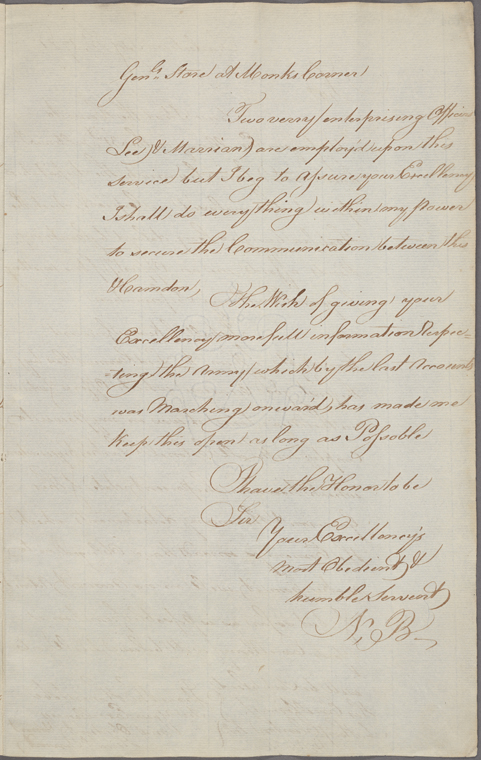 Genls. Store at Monks Corner
Two verry enterprising Officers
Lee & Marrian) are employ'd upon this
service but I beg to assure your Excellency
I shall do everything within my Power
to secure the Communication between this
& Camdon,
The Wish of giving your
Excellency more full information Respec=
ting the Army which by the last Accounts
was Marching onward, has made me
Keep this open as long as Possoble
I have the Honor to be
Sir
Your Excellency's
most Obedient &
humble Servent
N, B